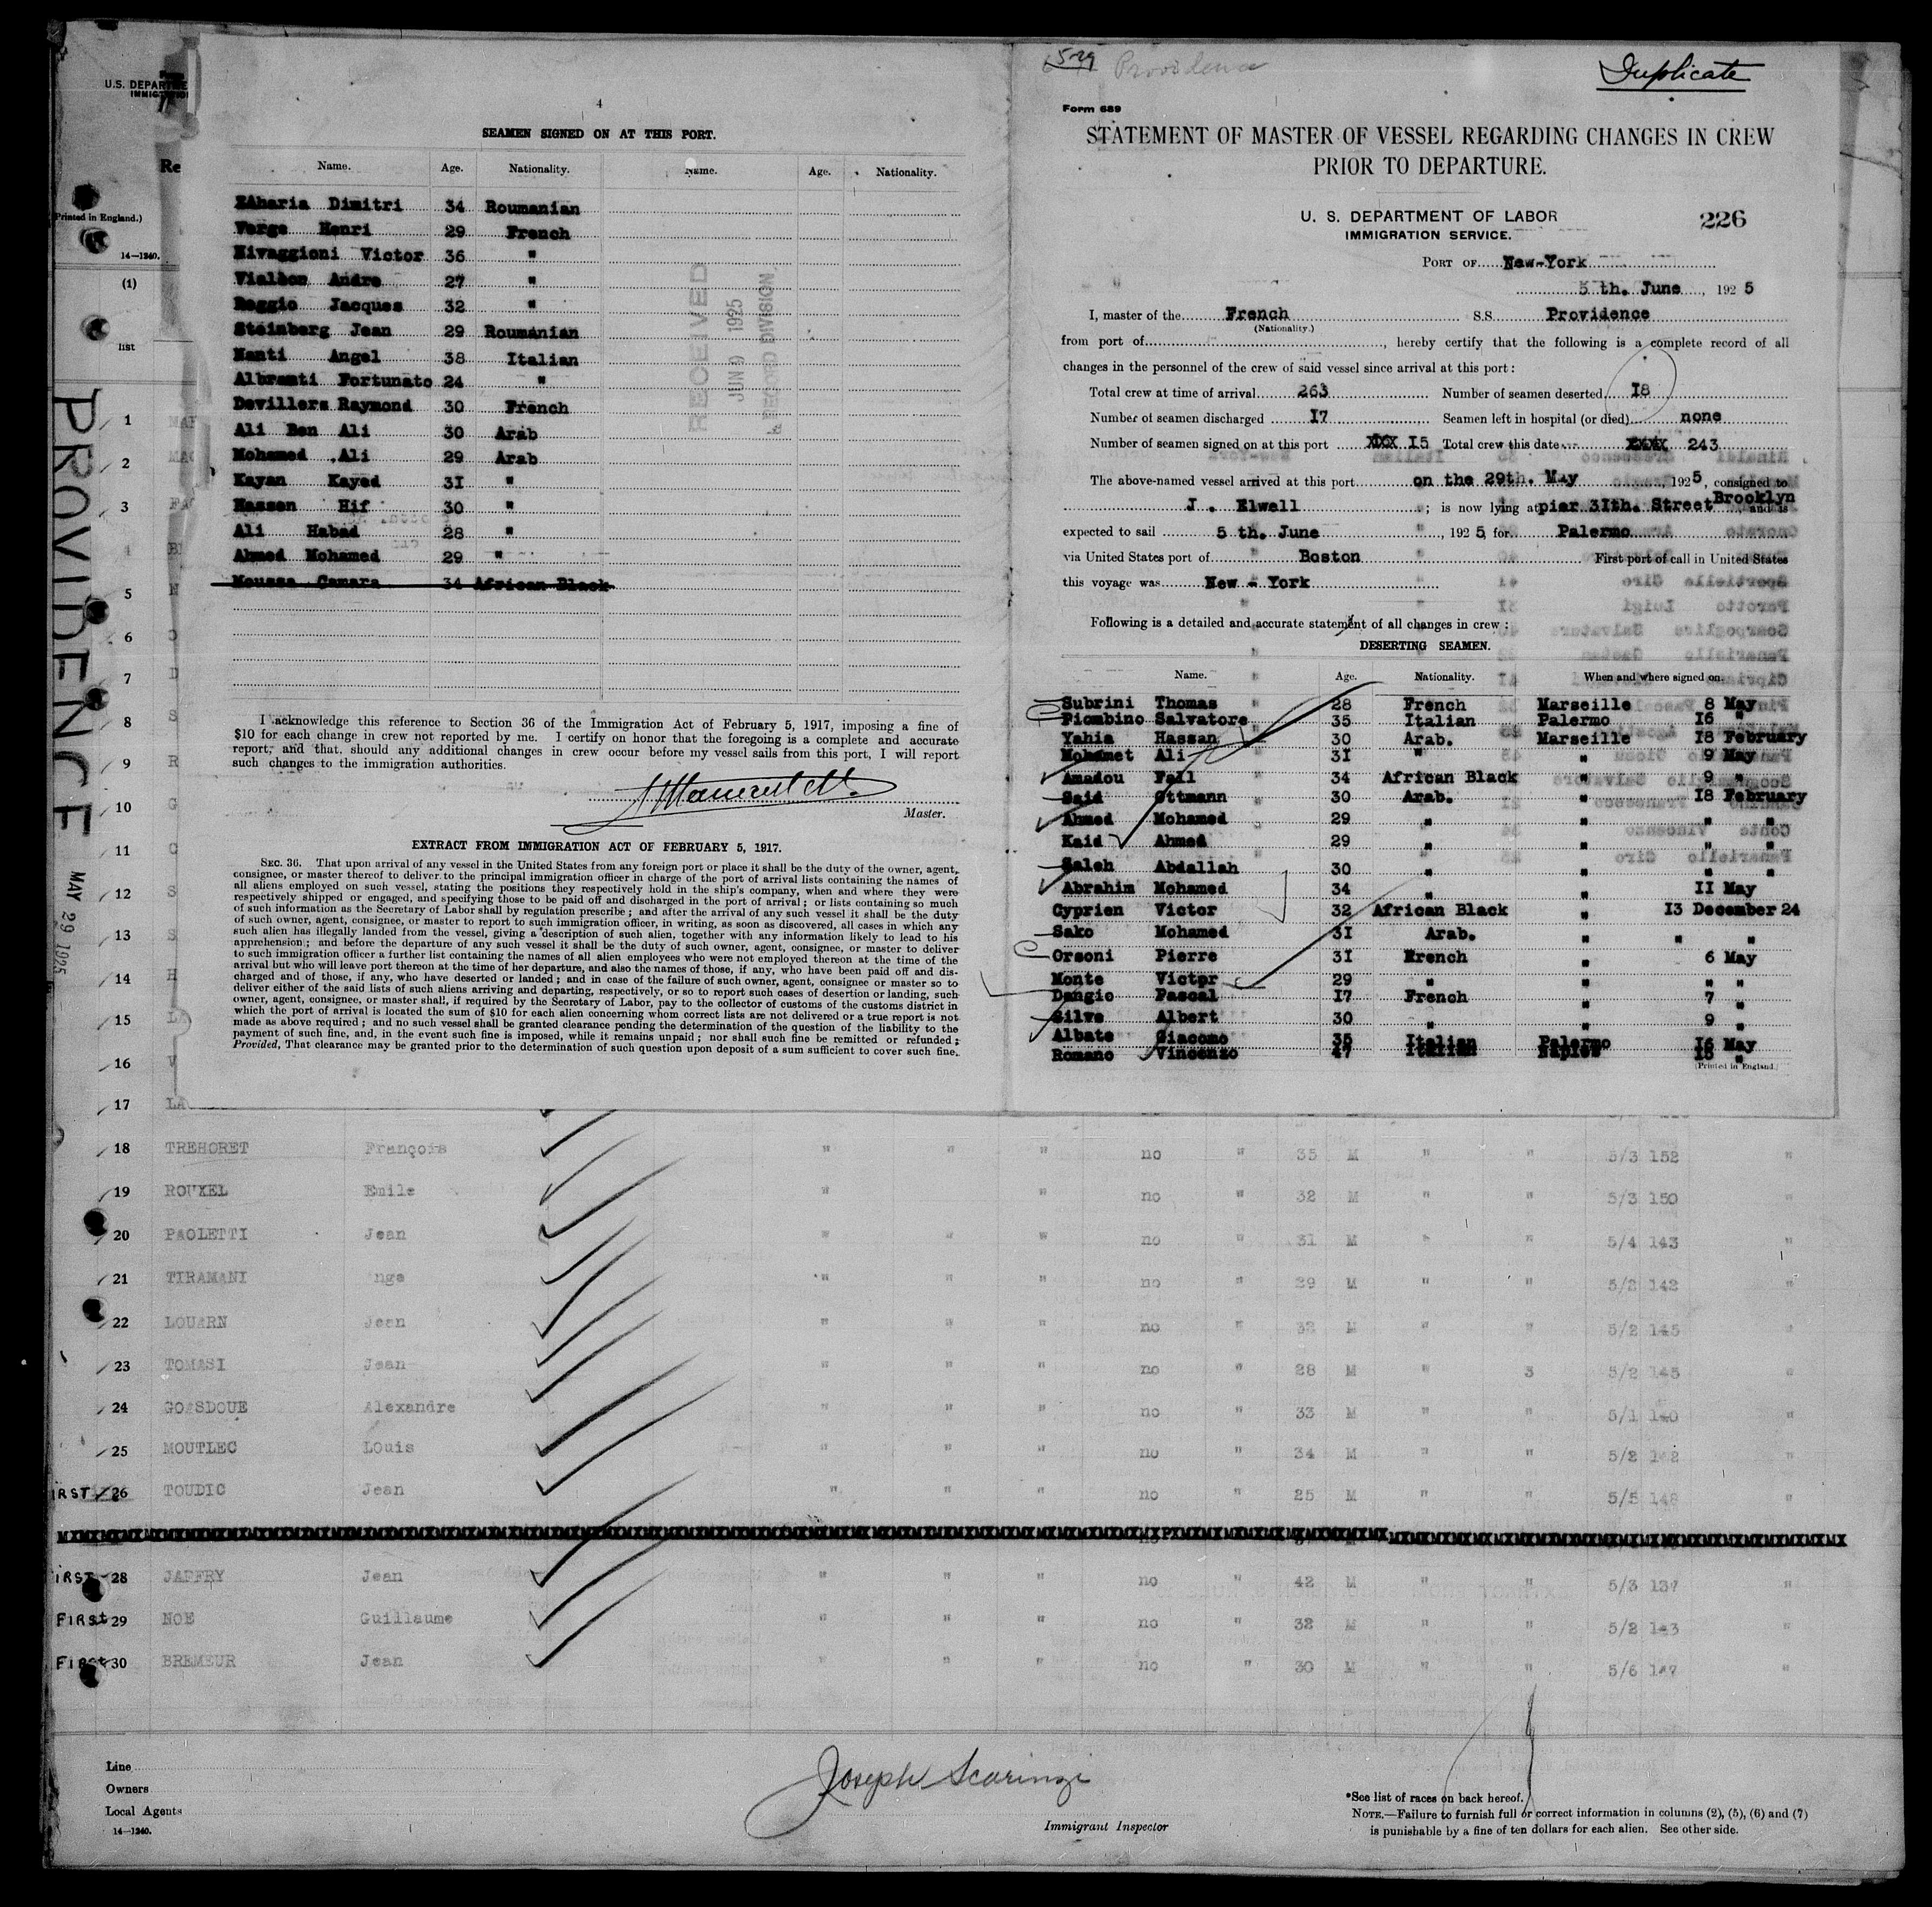 U.S. DEPARTME
IMMIGRATION
Re
Printed in England.)
14—1240.
(1)
list
PROVIDENCE
MAY 29 1925
4
SEAMEN SIGNED ON AT THIS PORT.
Name. Age. Nationality. Name. Age. Nationality.
ZAharia Dimitri 34 Roumanian
Verge Henri 29 French
Nivaggioni Victor 36 "
Vialhez Andre 27 "
Reggio Jacques 32 "
Steinberg Jean 29 Roumanian
Nanti Angel 38 Italian
Albranti Fortunato 24 "
Devillers Raymond 30 French
Ali Ben Ali 30 Arab
Mohamed Ali 29 Arab
Kayan Kayed 3I "
Hassen Hif 30 "
Ali Habad 28 "
Ahmed Mohamed 29 "
Moussa Camara 34 African Black
RECEIVED
JUN 9 1925
RECORD DIVISION
I acknowledge this reference to Section 36 of the Immigration Act of February 5, 1917, imposing a fine of
$10 for each change in crew not reported by me. I certify on honor that the foregoing is a complete and accurate
report, and that should any additional changes in crew occur before my vessel sails from this port, I will report
such changes to the immigration authorities.
Master.
EXTRACT FROM IMMIGRATION ACT OF FEBRUARY 5, 1917.
SEC. 36. That upon arrival of any vessel in the United States from any foreign port or place it shall be the duty of the owner, agent,
consignee, or master thereof to deliver to the principal immigration officer in charge of the port of arrival lists containing the names of
all aliens employed on such vessel, stating the positions they respectively hold in the ship's company, when and where they were
respectively shipped or engaged, and specifying those to be paid off and discharged in the port of arrival; or lists containing so much
of such information as the Secretary of Labor shall by regulation prescribe; and after the arrival of any such vessel it shall be the duty
of such owner, agent, consignee, or master to report to such immigration officer, in writing, as soon as discovered, all cases in which any
such alien has illegally landed from the vessel, giving a description of such alien, together with any information likely to lead to his
apprehension; and before the departure of any such vessel it shall be the duty of such owner, agent, consignee, or master to deliver
to such immigration officer a further list containing the names of all alien employees who were not employed thereon at the time of the
arrival but who will leave port thereon at the time of her departure, and also the names of those, if any, who have been paid off and dis-
charged and of those, if any, who have deserted or landed; and in case of the failure of such owner, agent, consignee or master so to
deliver either of the said lists of such aliens arriving and departing, respectively, or so to report such cases of desertion or landing, such
owner, agent, consignee, or master shall, if required by the Secretary of Labor, pay to the collector of customs of the customs district in
which the port of arrival is located the sum of $10 for each alien concerning whom correct lists are not delivered or a true report is not
made as above required; and no such vessel shall be granted clearance pending the determination of the question of the liability to the
payment of such fine, and, in the event such fine is imposed, while it remains unpaid; nor shall such fine be remitted or refunded:
Provided, That clearance may be granted prior to the determination of such question upon deposit of a sum sufficient to cover such fine.
5-29 Providence
Duplicate
Form 689
STATEMENT OF MASTER OF VESSEL REGARDING CHANGES IN CREW
PRIOR TO DEPARTURE.
U. S. DEPARTMENT OF LABOR
IMMIGRATION SERVICE.
226
PORT OF New-York
5 th. June, 1925
I, master of the French S.S. Providence
(Nationality.)
from port of, hereby certify that the following is a complete record of all
changes in the personnel of the crew of said vessel since arrival at this port:
Total crew at time of arrival 263 Number of seamen deserted I8
Number of seamen discharged I7 Seamen left in hospital (or died) none
Number of seamen signed on at this port XXX I5 Total crew this date XXXX 243
The above-named vessel arrived at this port on the 29th. May, 1925, consigned to
J. Elwell; is now lying at pier 3Ith. Street Brooklyn and is
expected to sail 5 th. June, 1925, for Palermo
via United States port of Boston First port of call in United States
this voyage was New - York
Following is a detailed and accurate statement of all changes in crew:
DESERTING SEAMEN.
Name. Age. Nationality. When and where signed on.
Subrini Thomas 28 French Marseille 8 May
Piombino Salvatore 35 Italian Palermo I6 "
Yahia Hassan 30 Arab. Marseille I8 February
Mohamet Ali 3I " " 9 May
Amadou Fall 34 African Black " 9 "
Said Ottmann 30 Arab. " I8 February
Ahmed Mohamed 29 " " " "
Kaid Ahmed 29 " " " "
Saleh Abdallah 30 " " " "
Abrahim Mohamed 34 " " II May
Cyprien Victor 32 African Black " I3 December 24
Sako Mohamed 3I Arab. " " "
Orsoni Pierre 3I French " 6 May
Monte Victor 29 " " " "
Dangio Pascal I7 French " 7 "
Silve Albert 30 " " 9 "
Albate Giacomo 35 Italian Palermo I6 May
Romano Vincenzo 47 Italian Naples I5 "
(Printed in England.)
1
2
3
5
6
7
8
9
10
11
12
13
14
15
16
17 LA
18 TREHORET François " " " no " 35 M " " 5/3 152 "
19 ROUXEL Emile " " no " 32 M " " 5/3 150 "
20 PAOLETTI Jean " " " no " 31 M " " 5/4 143 "
21 TIRAMANI nge " " " no " 29 M " " 5/2 142 "
22 LOUARN Jean " " " no " 32 M " " 5/2 145 "
23 TOMASI Jean " " " no " 28 M " 3 5/2 145 "
24 GOASDOUE Alexandre " " " no " 33 M " " 5/1 140 "
25 MOUTLEC LOuis " " " no " 34 M " " 5/2 142 "
IRST 26 TOUDIC Jean " " " no " 25 M " " 5/5 148 "
IRST 28 JAFFRY Jean " " " no " 42 M " " 5/3 137 "
FIRSt 29 NOE Guillaume " " " no " 32 M " " 5/2 143 "
FIRSt 30 BREMEUR Jean " " " no " 30 M " " 5/6 147 "
Line
Owners
Local Agents
14—1240.
Joseph Scaringi
Immigrant Inspector
*See list of races on back hereof.
NOTE.—Failure to furnish full or correct information in columns (2), (5), (6) and (7)
is punishable by a fine of ten dollars for each alien. See other side.